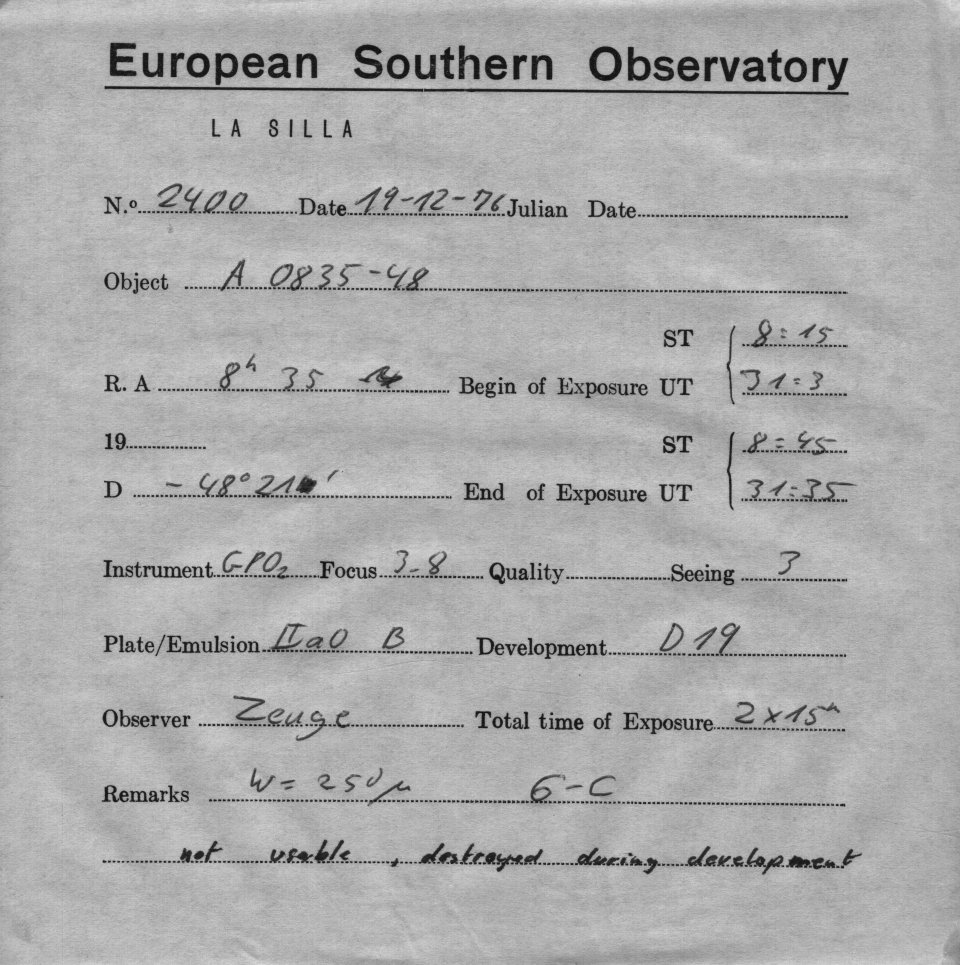 European Southern Observatory
LA SILLA
N.º 2400 Date 19-12-76 Julian Date
Object A 0835-48
ST 8:15
R. A 8h 35 Begin of Exposure UT 31:3
19 ST 8:45
D -48° 21' End of Exposure UT 31:35
Instrument GPO2 Focus 3-8 Quality Seeing 3
Plate/Emulsion IIaO B Development D19
Observer Zeuge Total time of Exposure 2x15m
Remarks W= 250μ 6-C
not usable, destroyed during development